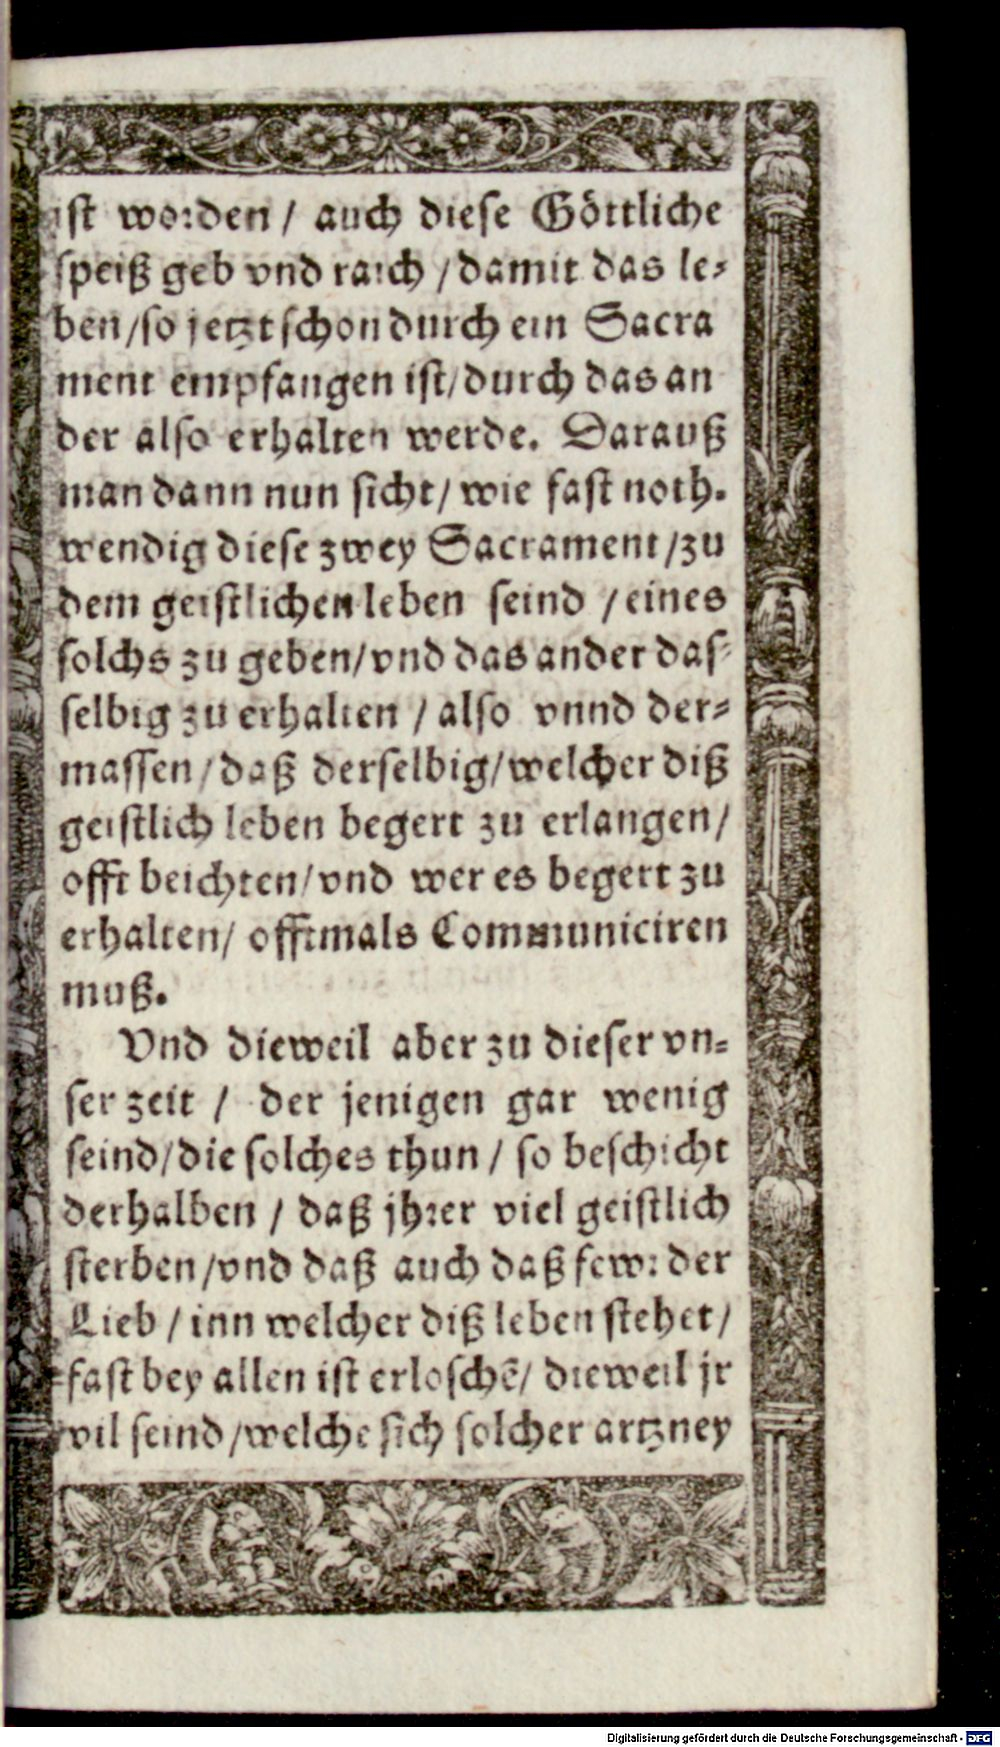 ist worden / auch diese Göttliche
speiß geb vnd raich / damit das le⸗
ben / so jetzt schon durch ein Sacra
ment empfangen ist / durch das an
der also erhalten werde. Darauß
man dann nun sicht / wie fast noth⸗
wendig diese zwey Sacrament / zu
dem geistlichen leben seind / eines
solchs zu geben / vnd das ander das⸗
selbig zu erhalten / also vnnd der⸗
massen / daß derselbig / welcher diß
geistlich leben begert zu erlangen /
offt beichten / vnd wer es begert zu
erhalten / offtmals Communiciren
muß.
Vnd dieweil aber zu dieser vn⸗
ser zeit / der jenigen gar wenig
seind / die solches thun / so beschicht
derhalben / daß jhrer viel geistlich
sterben / vnd daß auch daß fewr der
Lieb / inn welcher diß leben stehet /
fast bey allen ist erloschē / dieweil jr
vil seind / welche sich solcher artzney
Digitalisierung gefördert durch die Deutsche Forschungsgemeinschaft - DFG